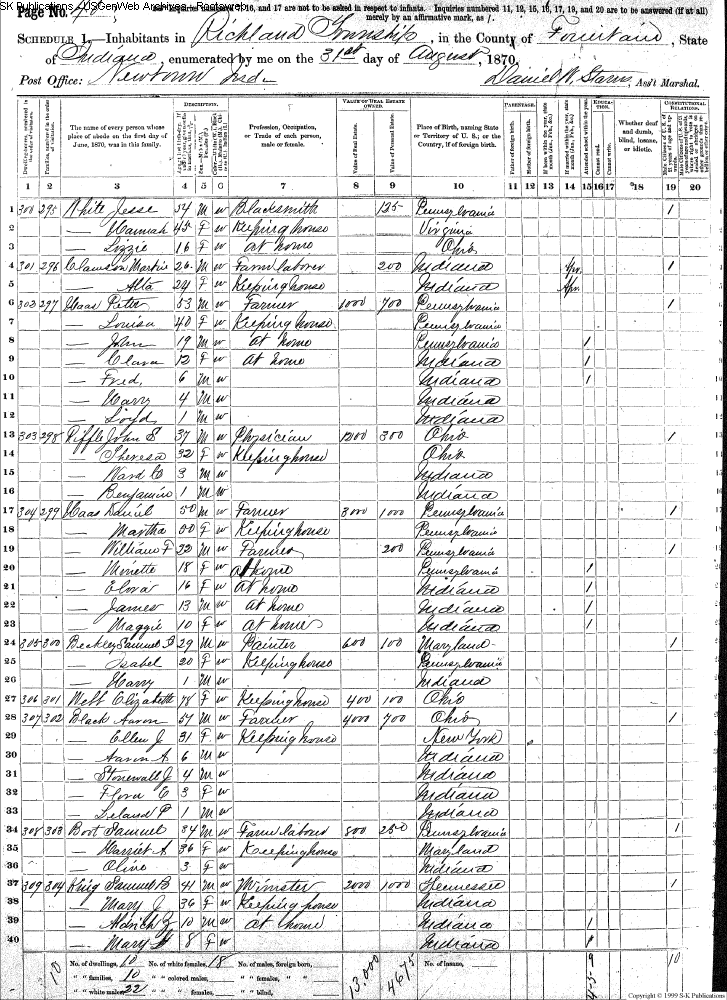 SK Publications - USGenWeb Archives - Rootsweb
Page No. 40 Inquiries numbered 11, 12, 15, 16, 17, 19, and 20 are to be answered (if at all)
and 17 are not to be asked in respect to infants. merely by an affirmative mark, as /.
SCHEDULE 1.—Inhabitants in Richland Township, in the County of Fountain, State
of Indiana, enumerated by me on the 31st day of August, 1870.
Post Office: Newtown Ind. Daniel W. Starns, Ass't Marshal.
DESCRIPTION. VALUE OF REAL ESTATE OWNED. PARENTAGE. EDUCATION. CONSTITUTIONAL RELATIONS.
The name of every person whose place of abode on the first day of June, 1870, was in this family.
Profession, Occupation, or Trade of each person, male or female.
Value of Real Estate. Value of Personal Estate.
Place of Birth, naming State or Territory of U. S.; or the Country, if of foreign birth.
Father of foreign birth. Mother of foreign birth.
Attended school within the year. Cannot read. Cannot write.
Whether deaf and dumb, blind, insane, or idiotic.
1 2 3 4 5 6 7 8 9 10 11 12 13 14 15 16 17 18 19 20
1 300 295 White Jesse 54 M W Blacksmith 135 Pennsylvania 1
2 — Hannah 45 F W Keeping house Virginia
3 — Lizzie 16 F W at home Ohio
4 301 296 Clawson Martin 26 M W Farm laborer 200 Indiana Apr 1
5 — Alta 24 F W Keeping house Indiana Apr
6 302 297 Haas Peter 53 M W Farmer 1000 700 Pennsylvania 1
7 — Louisa 40 F W Keeping house Pennsylvania
8 — John 19 M W at home Pennsylvania 1
9 — Clara 12 F W at home Indiana 1
10 — Fred, 6 M W Indiana 1
11 — Harry 4 M W Indiana
12 — Loyd 1 M W Indiana
13 303 298 Piffle John S 37 M W Physician 1200 300 Ohio 1
14 — Theresa 32 F W Keeping house Ohio
15 — Ward C 3 M W Indiana
16 — Benjamin 1 M W Indiana
17 304 299 Haas Daniel 50 M W Farmer 3000 1000 Pennsylvania 1
18 — Martha 50 F W Keeping house Pennsylvania
19 — William F 22 M W Farmer 200 Pennsylvania 1
20 — Minette 18 F W at home Pennsylvania 1
21 — Elvira 16 F W at home Indiana 1
22 — James 13 M W at home Indiana 1
23 — Maggie 10 F W at home Indiana 1
24 305 300 Beckley Samuel B 29 M W Painter 600 100 Maryland 1
25 — Isabel 20 F W Keeping house Pennsylvania
26 — Harry 1 M W Indiana
27 306 301 Webb Elizabeth 78 F W Keeping house 400 100 Ohio
28 307 302 Black Aaron 57 M W Farmer 4000 700 Ohio 1
29 — Ellen J 31 F W Keeping house New York
30 — Aaron A 6 M W Indiana
31 — Stonewall J 4 M W Indiana
32 — Flora E 3 F W Indiana
33 — Leland P 1 M W Indiana
34 308 303 Boot Samuel 34 M W Farm laborer 800 250 Pennsylvania 1
35 — Harriet A 36 F W Keeping house Maryland
36 — Olive 3 F W Indiana
37 309 304 King Samuel B 41 M W Minister 2000 1000 Tennessee 1
38 — Mary J 36 F W Keeping house Indiana
39 — Aldrich Z 10 M W at home Indiana 1
40 — Mary 8 F W Indiana 1
No. of dwellings, 10 No. of white females, 18 No. of males, foreign born, No. of insane,
" " families, 10 " " colored males, " " females, "
" " white males, 22 " " " females, " " blind,
10 13,000 4675 9 10
Copyright © 1999 S-K Publications